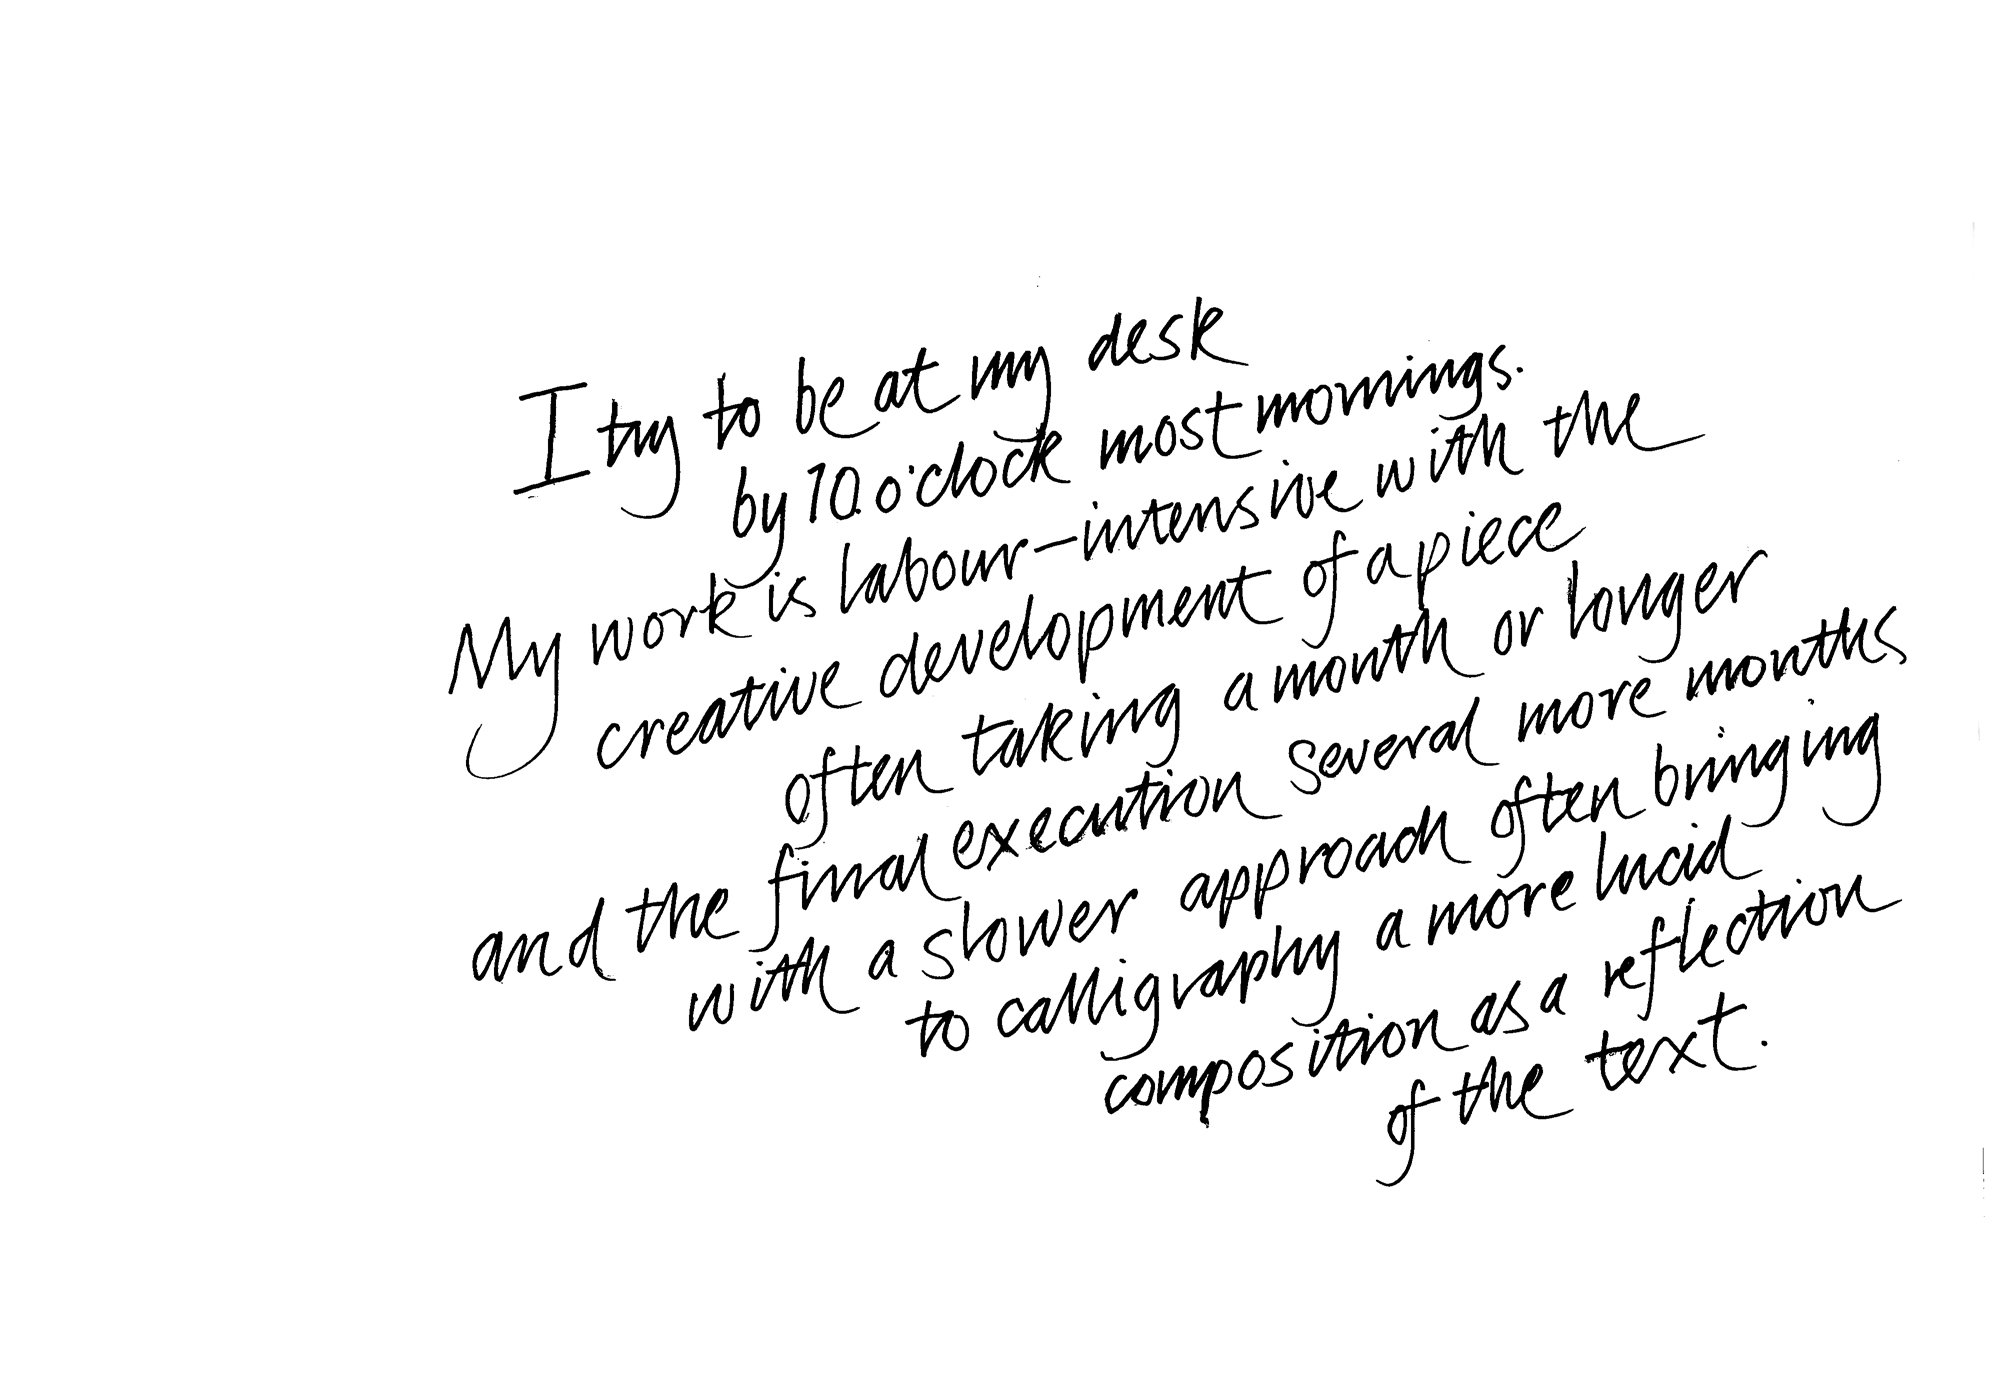 I try to be at my desk
by 10 o'clock most mornings.
My work is labour-intensive with the
creative development of a piece
often taking a month or longer
and the final execution several more months
with a slower approach often bringing
to calligraphy a more lucid
composition as a reflection
of the text.